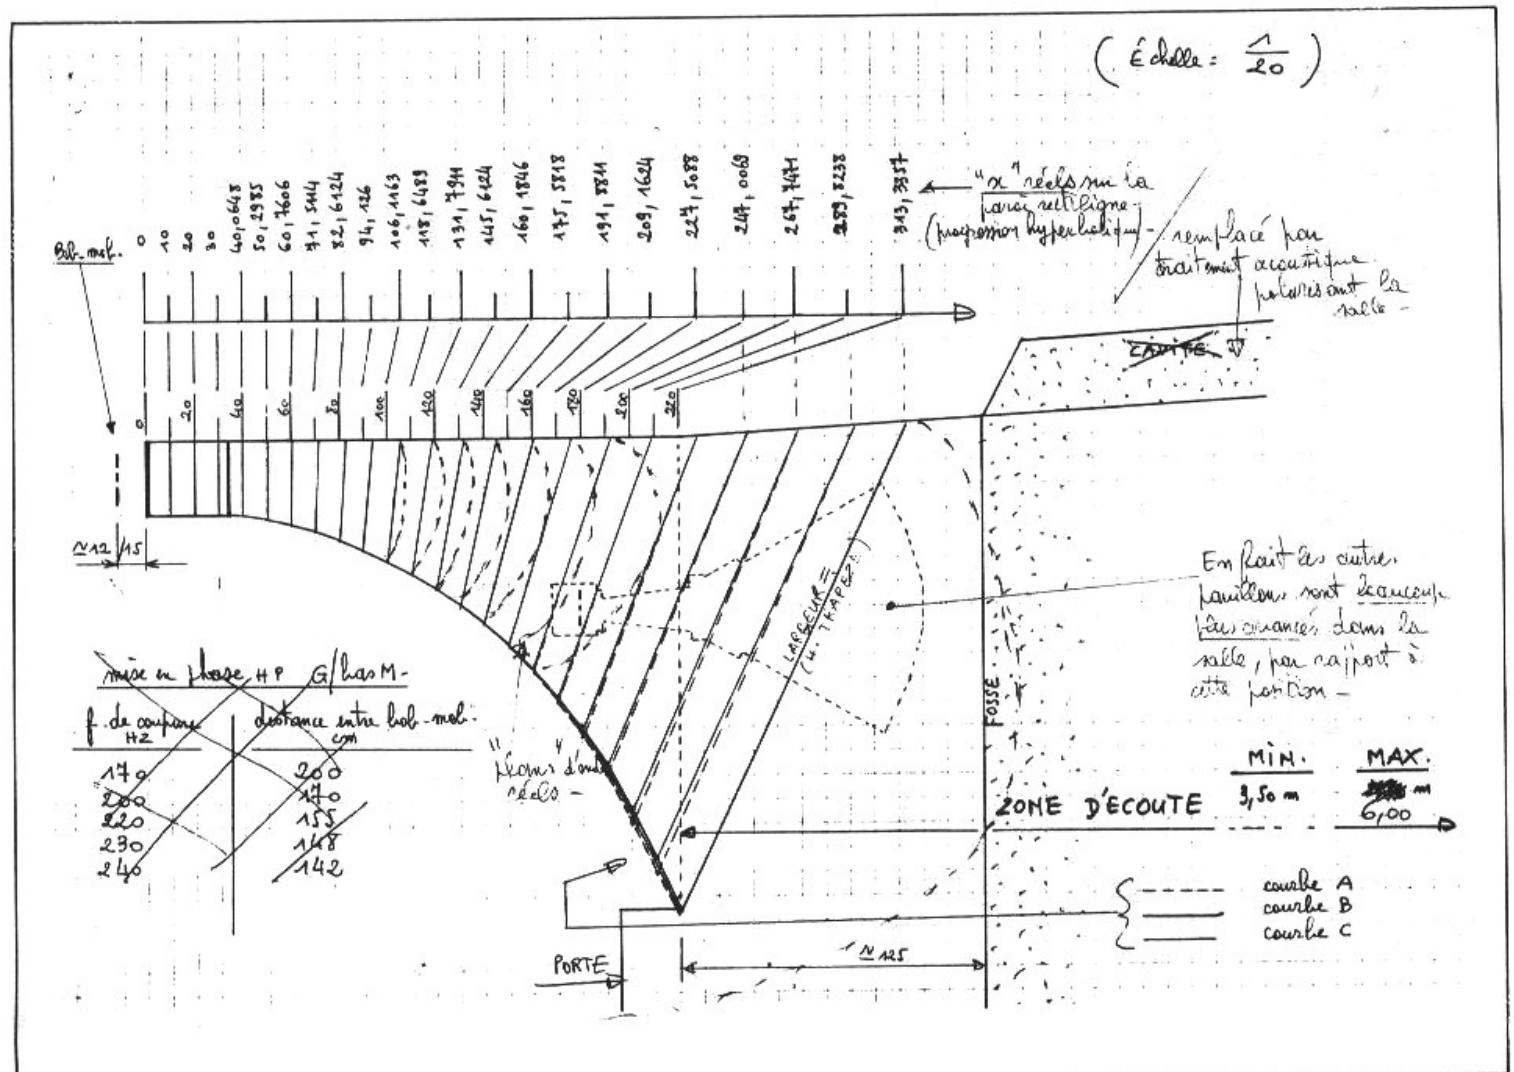 ( Échelle = 1/20 )
0
10
20
30
40,0648
50,2985
60,7606
71,5114
82,6124
94,126
106,1163
118,6489
131,7911
145,6124
160,1846
175,5818
191,8811
209,1624
227,5088
247,0069
267,7471
289,8238
313,3357
"x" réels sur la
paroi rectiligne
(progression hyperbolique) -
remplacé par
traitement acoustique
polarisant la
salle -
Bob-mob.
CAVITÉ
0
20
40
60
80
100
120
140
160
180
200
220
≃12/15
LARGEUR =
En fait les autres
pavillons sont beaucoup
plus avancés dans la
salle, par rapport à
cette position -
FOSSE
mise en phase HP G/bas M-
f. de coupure
HZ
distance entre bob-mob.
cm
170 200
200 170
220 155
230 148
240 142
"plans" d'onde
réels -
ZONE D'ÉCOUTE
MIN.
3,50 m
MAX.
m
6,00
courbe A
courbe B
courbe C
PORTE
≃125